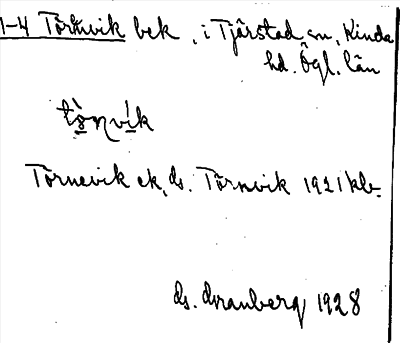 1-4 Törnvik bek, i Tjärstad sn, Kinda
hd. Ögl. län
tò̱nvi̱k
Törnevik ek, ds. Törnvik 1921 kbr
ds. Granberg 1928